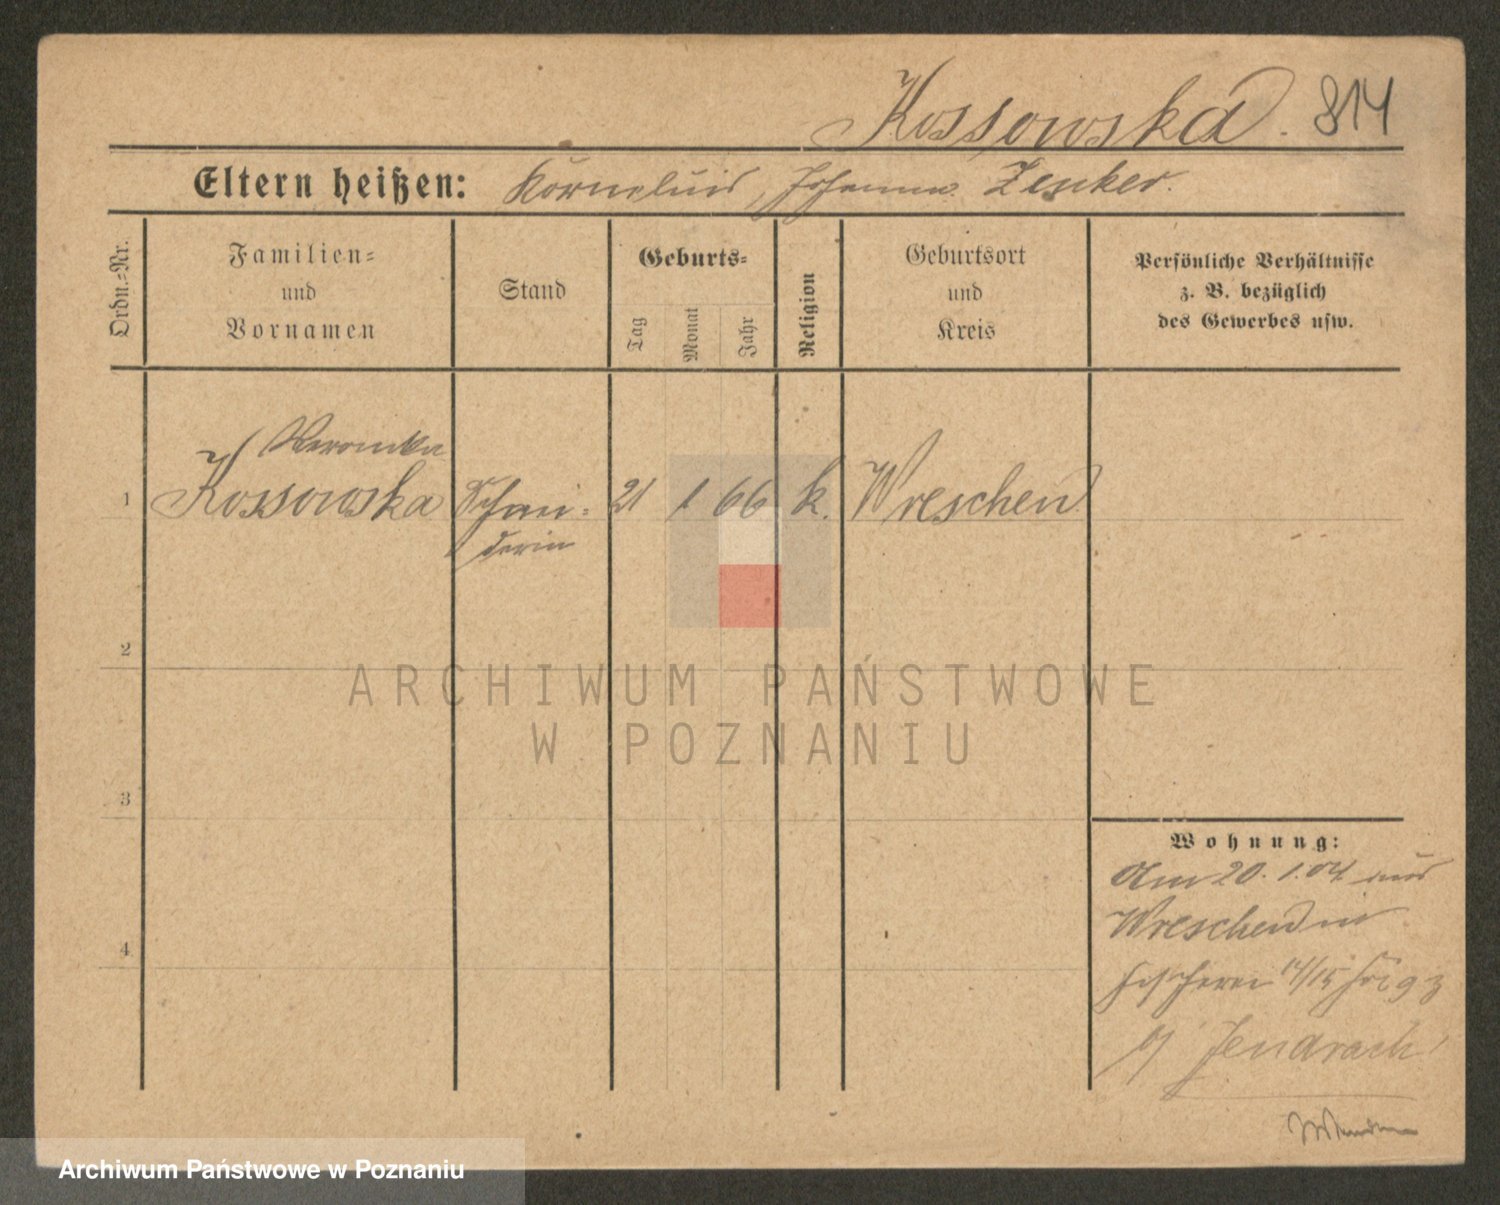 Kossowska. 814
Eltern heißen: Kornelius, Johanna Zenker.
Ordn.-Nr.
Familien-
und
Vornamen
Stand
Geburts-
Tag
Monat
Jahr
Religion
Geburtsort
und
Kreis
Persönliche Verhältnisse
z. B. bezüglich
des Gewerbes usw.
Veronika
1 Kossowska Schnei- 21 1 66 k. Wreschen
derin
2
3
4
Wohnung:
Am 20.1.04 aus
Wreschen in
Fischerei 14/15
b/ Jendrach
ARCHIWUM PAŃSTWOWE
W POZNANIU
Archiwum Państwowe w Poznaniu